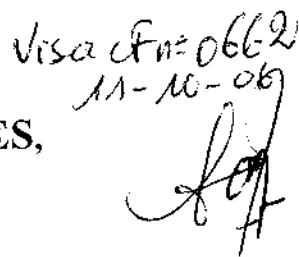 Visa CF n= 0662
11-10-06
ES,